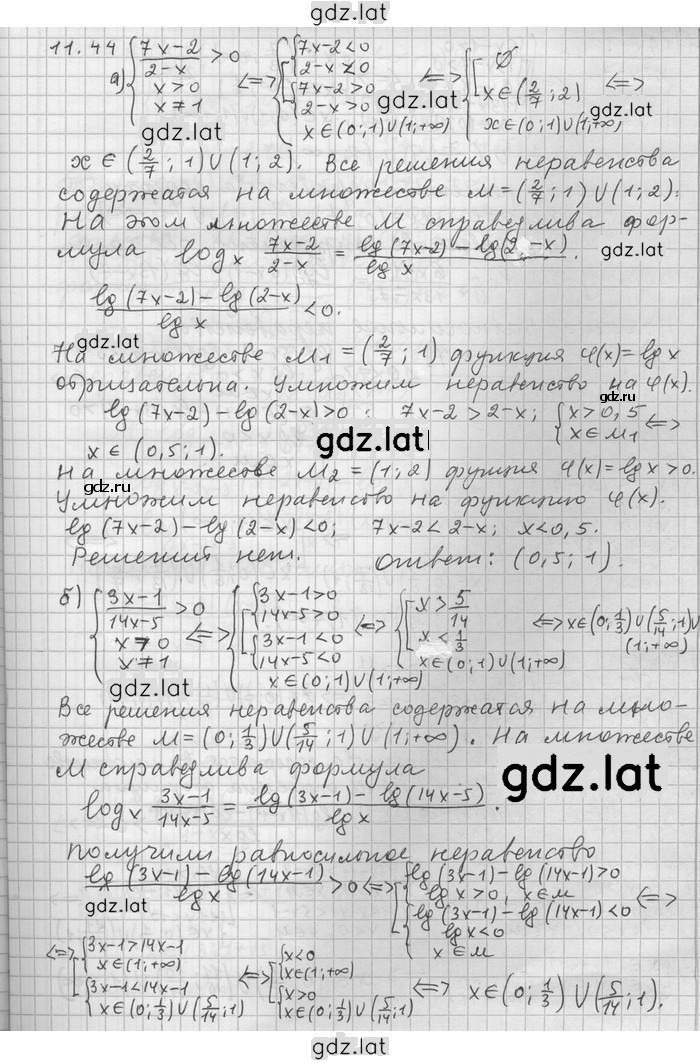 gdz.lat
11.44
а) { (7x-2)/(2-x) > 0 ; x > 0 ; x ≠ 1 <=> { [ { 7x-2<0 ; 2-x<0 ; { 7x-2>0 ; 2-x>0 ; x∈(0;1)∪(1;+∞) <=> { [ ∅ ; x∈(2/7;2) ; x∈(0;1)∪(1;+∞) <=>
gdz.lat
gdz.lat
gdz.lat
x ∈ (2/7; 1)∪(1; 2). Все решения неравенства
содержатся на множестве M=(2/7; 1)∪(1; 2).
На этом множестве M справедлива фор-
мула log_x (7x-2)/(2-x) = (lg(7x-2)-lg(2-x))/(lg x).
gdz.lat
(lg(7x-2)-lg(2-x))/(lg x) < 0.
gdz.lat
На множестве M₁=(2/7; 1) функция φ(x)=lg x
отрицательна. Умножим неравенство на φ(x).
lg(7x-2)-lg(2-x)>0; 7x-2>2-x; { x>0,5 ; x∈M₁ <=>
x∈(0,5; 1).
gdz.lat
На множестве M₂=(1; 2) функция φ(x)=lg x>0.
gdz.ru
Умножим неравенство на функцию φ(x).
lg(7x-2)-lg(2-x)<0; 7x-2<2-x; x<0,5.
Решений нет. Ответ: (0,5; 1).
б) { (3x-1)/(14x-5) > 0 ; x > 0 ; x ≠ 1 <=> { [ { 3x-1>0 ; 14x-5>0 ; { 3x-1<0 ; 14x-5<0 ; x∈(0;1)∪(1;+∞) <=> { [ x>5/14 ; x<1/3 ; x∈(0;1)∪(1;+∞) <=> x∈(0;1/3)∪(5/14;1)∪(1;+∞)
gdz.lat
Все решения неравенства содержатся на мно-
жестве M=(0; 1/3)∪(5/14; 1)∪(1;+∞). На множестве
M справедлива формула
gdz.lat
log_x (3x-1)/(14x-5) = (lg(3x-1)-lg(14x-5))/(lg x).
Получили равносильное неравенство
(lg(3x-1)-lg(14x-1))/(lg x) > 0 <=> [ { lg(3x-1)-lg(14x-1)>0 ; lg x>0, x∈M ; { lg(3x-1)-lg(14x-1)<0 ; lg x<0 ; x∈M <=>
gdz.lat
<=> [ { 3x-1>14x-1 ; x∈(1;+∞) ; { 3x-1<14x-1 ; x∈(0;1/3)∪(5/14;1) <=> [ { x<0 ; x∈(1;+∞) ; { x>0 ; x∈(0;1/3)∪(5/14;1) <=> x∈(0; 1/3)∪(5/14; 1).
gdz.lat